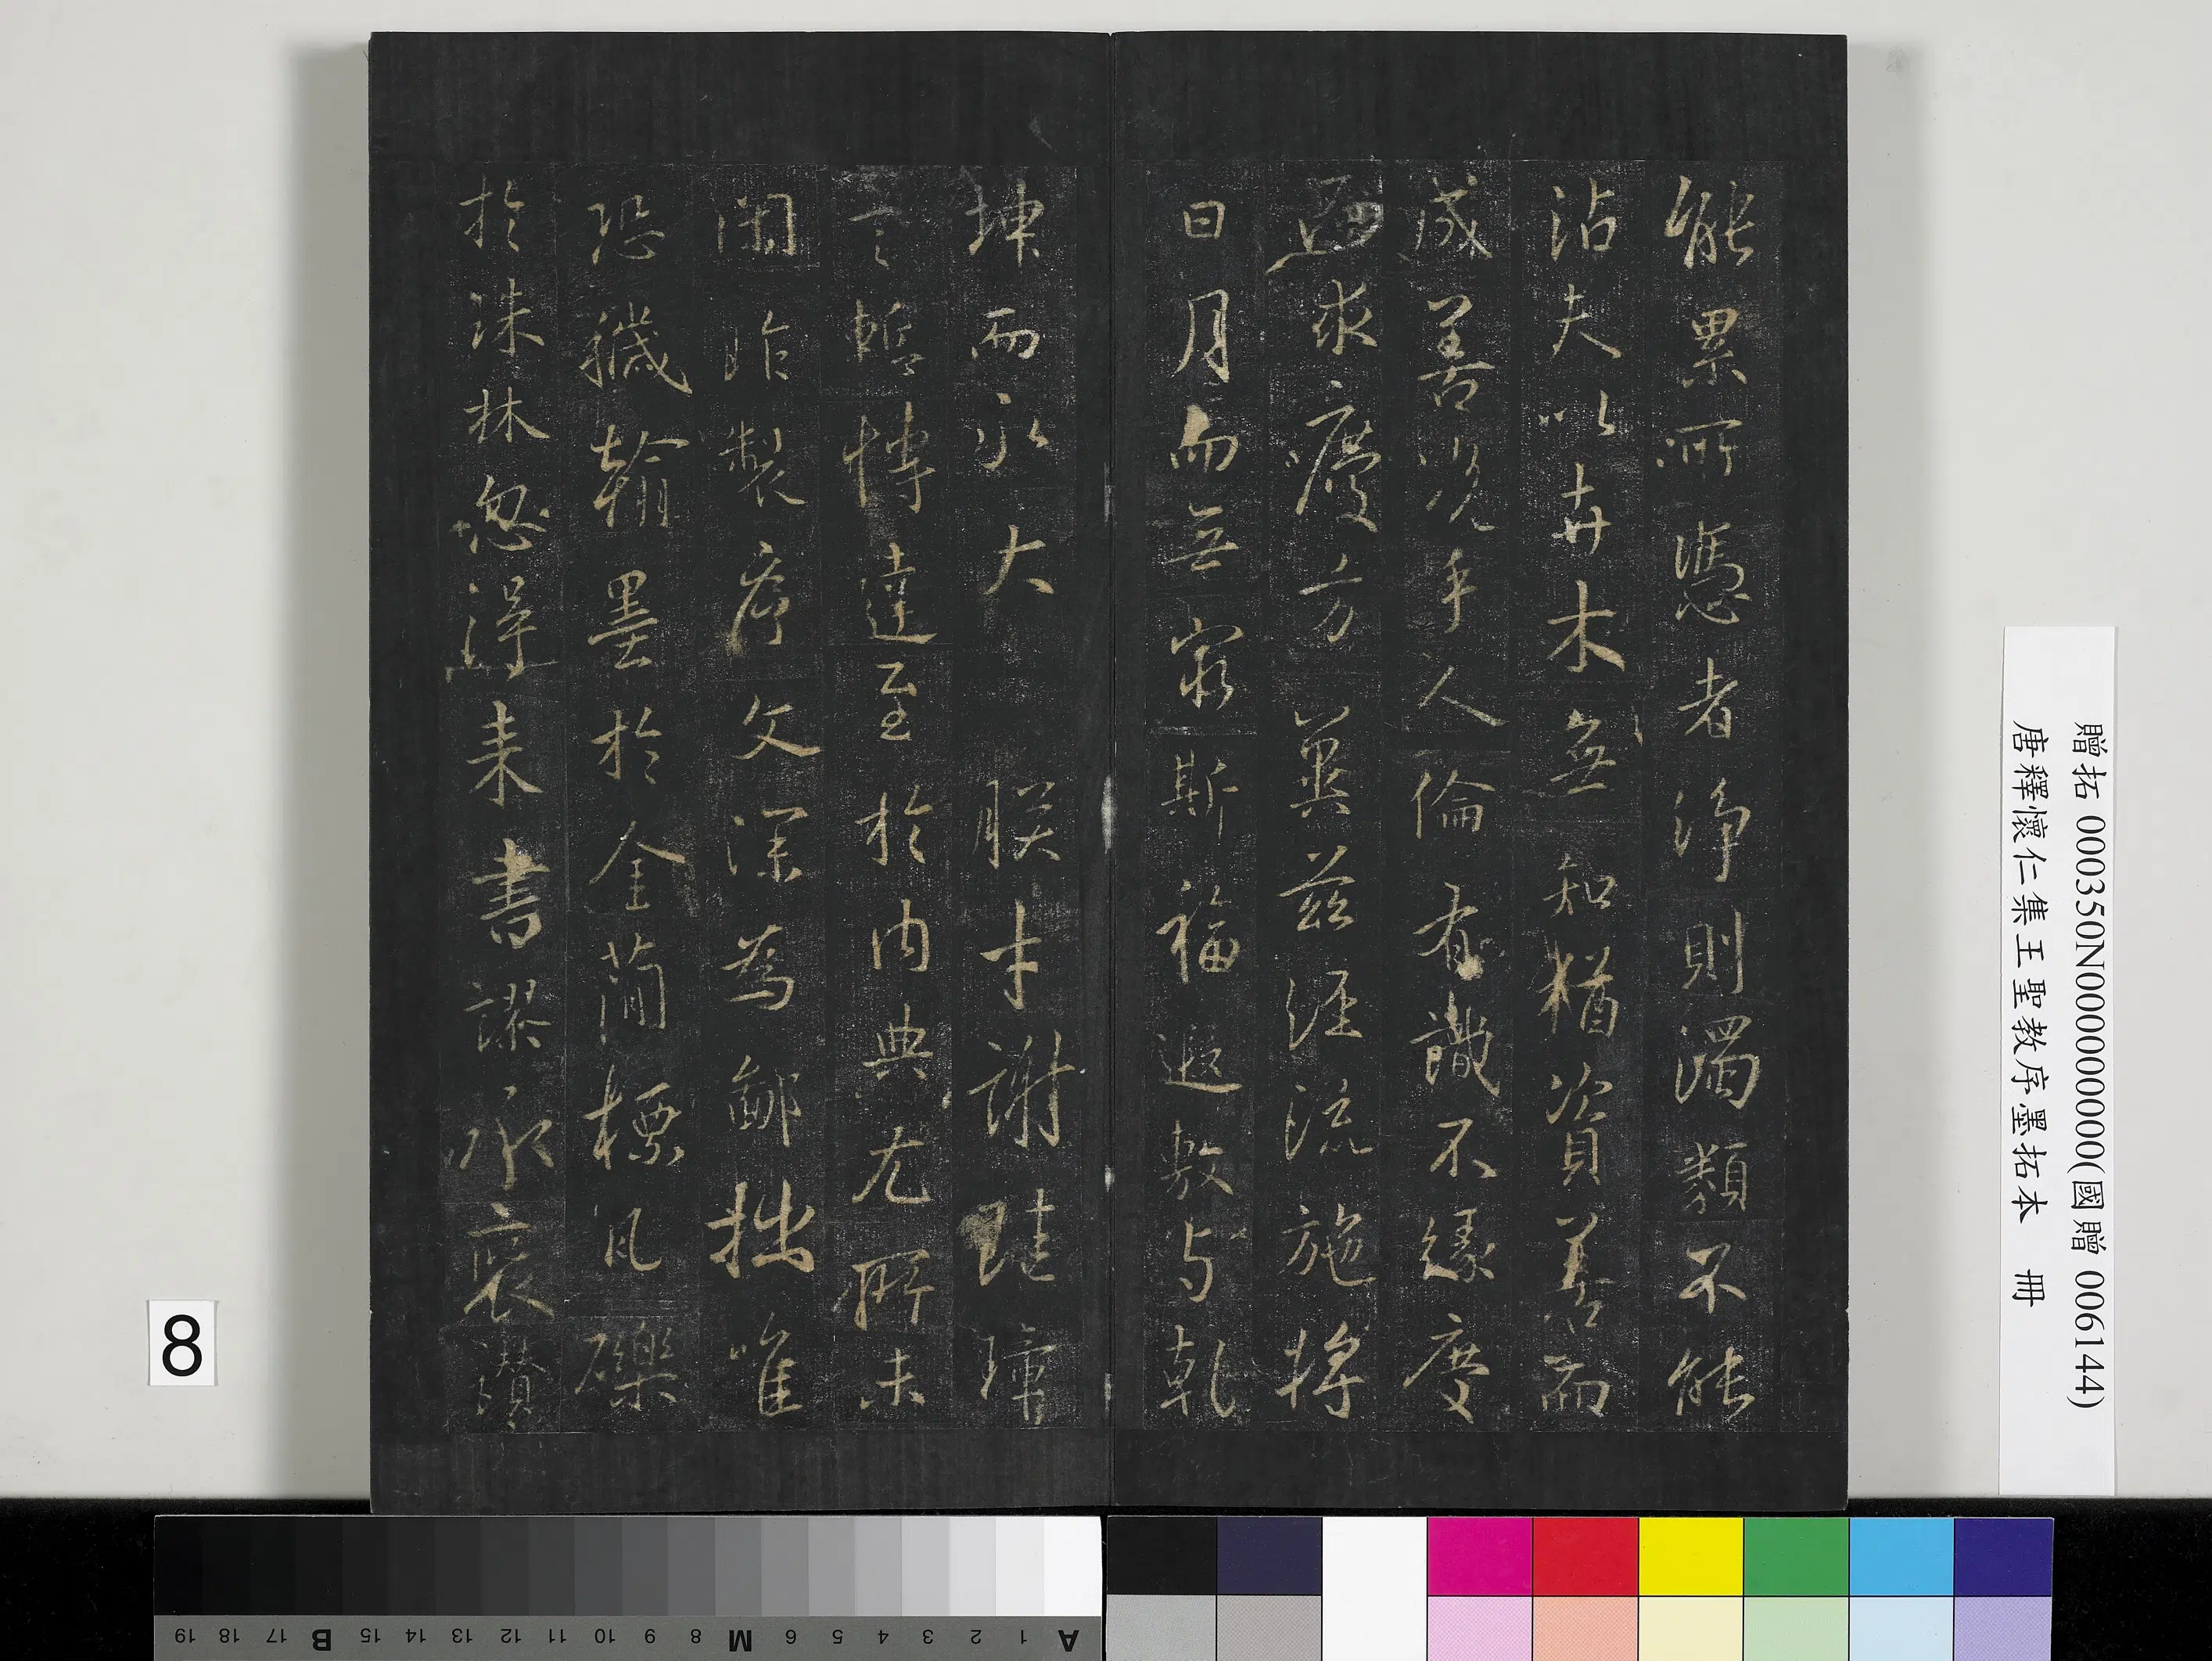 能累所憑者淨則濁類不能
沾夫以卉木無知猶資善而
成善況乎人倫有識不緣慶
而求慶方冀茲經流施將
日月而無窮斯福遐敷与乾
坤而永大 朕才謝珪璋
言慙博達至於內典尤所未
閑昨製序文深為鄙拙唯
恐穢翰墨於金簡標瓦礫
於珠林忽得來書謬承褒讚
贈拓 000350N000000000(國贈 006144)
唐釋懷仁集王聖教序墨拓本 冊
8
A 1 2 3 4 5 6 M 8 9 10 11 12 13 14 15 B 17 18 19